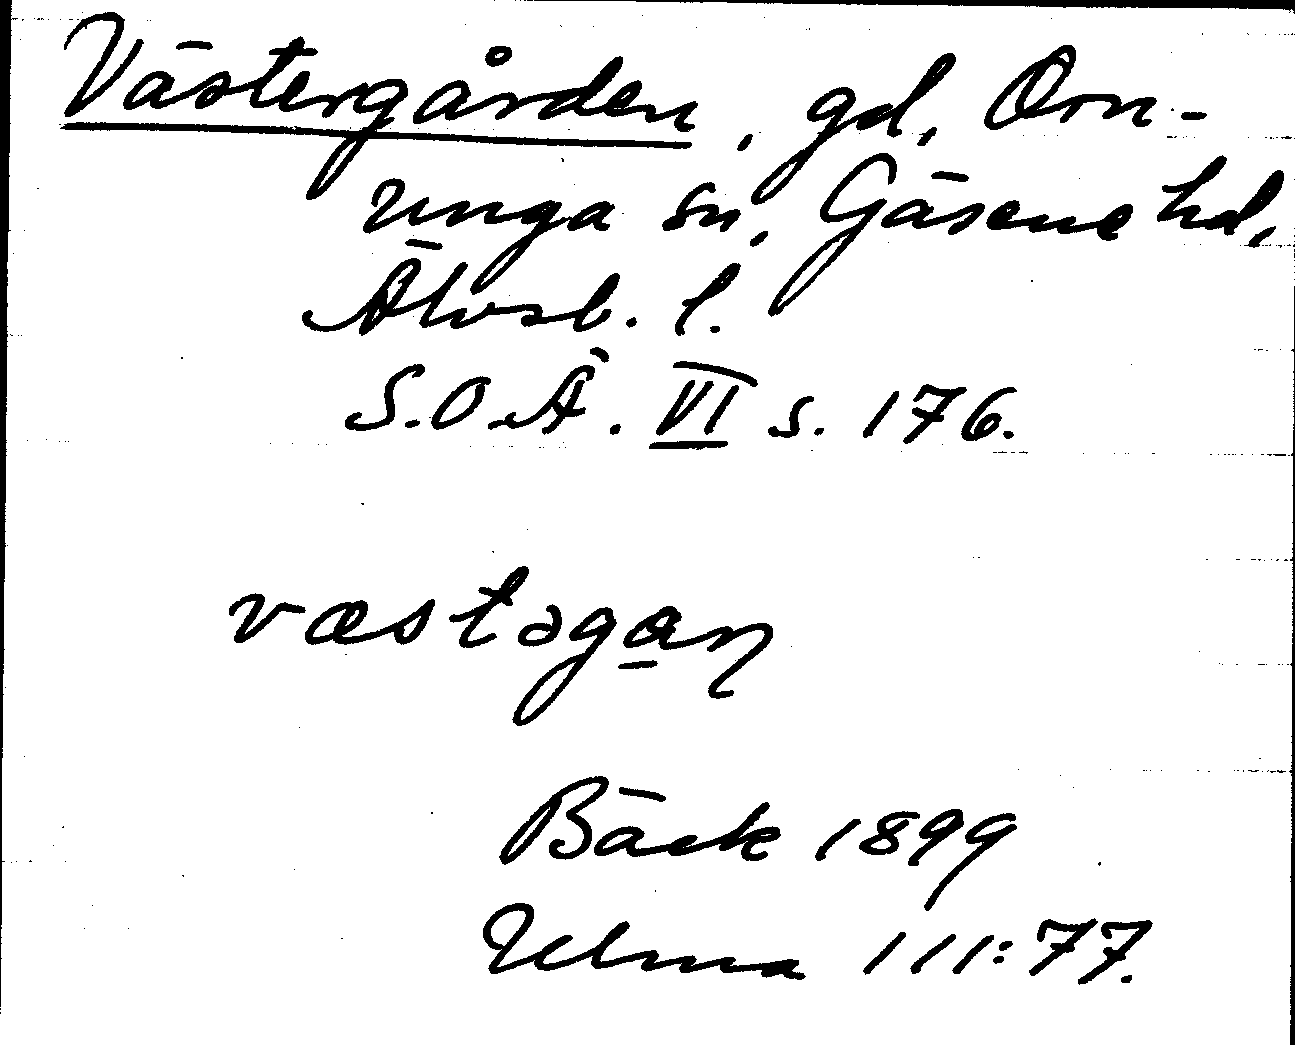 Västergården, gd, Orn-
unga sn, Gäsene hd,
Älvsb. l.
S.O.Ä. VI s. 176.
væstəga̲ɳ
Bäck 1899
Ulma 111:77.